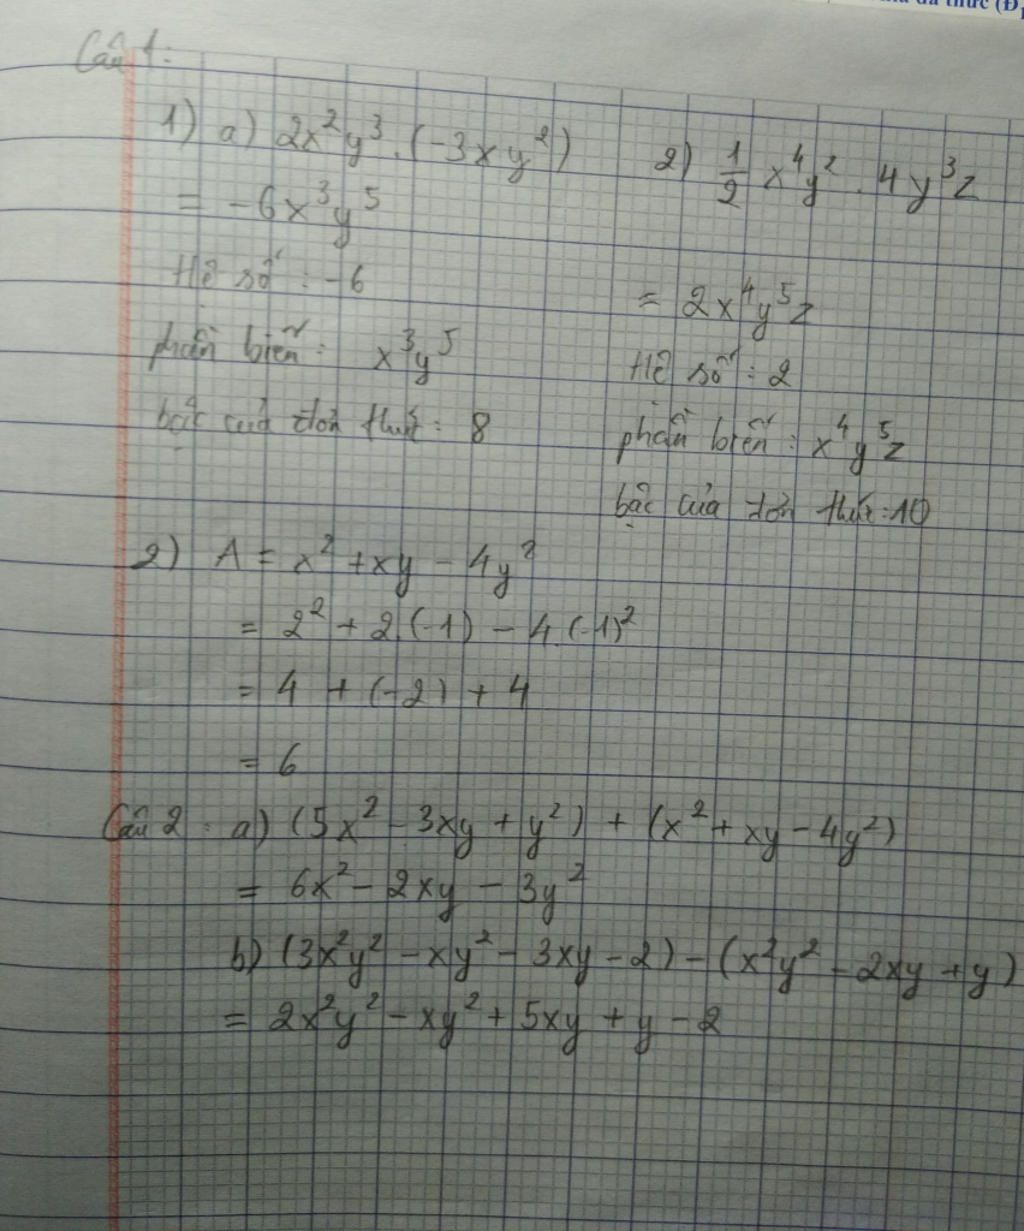 đa thức (Đ
Câu 1:
1) a) 2x²y³.(-3xy²)
= -6x³y⁵
Hệ số : -6
phần biến : x³y⁵
bậc của đơn thức : 8
2) 1/2 x⁴y² . 4y³z
= 2x⁴y⁵z
Hệ số : 2
phần biến : x⁴y⁵z
bậc của đơn thức : 10
2) A = x² + xy - 4y²
= 2² + 2.(-1) - 4.(-1)²
= 4 + (-2) + 4
= 6
Câu 2 : a) (5x² - 3xy + y²) + (x² + xy - 4y²)
= 6x² - 2xy - 3y²
b) (3x²y² - xy² - 3xy - 2) - (x²y² - 2xy + y)
= 2x²y² - xy² + 5xy + y - 2